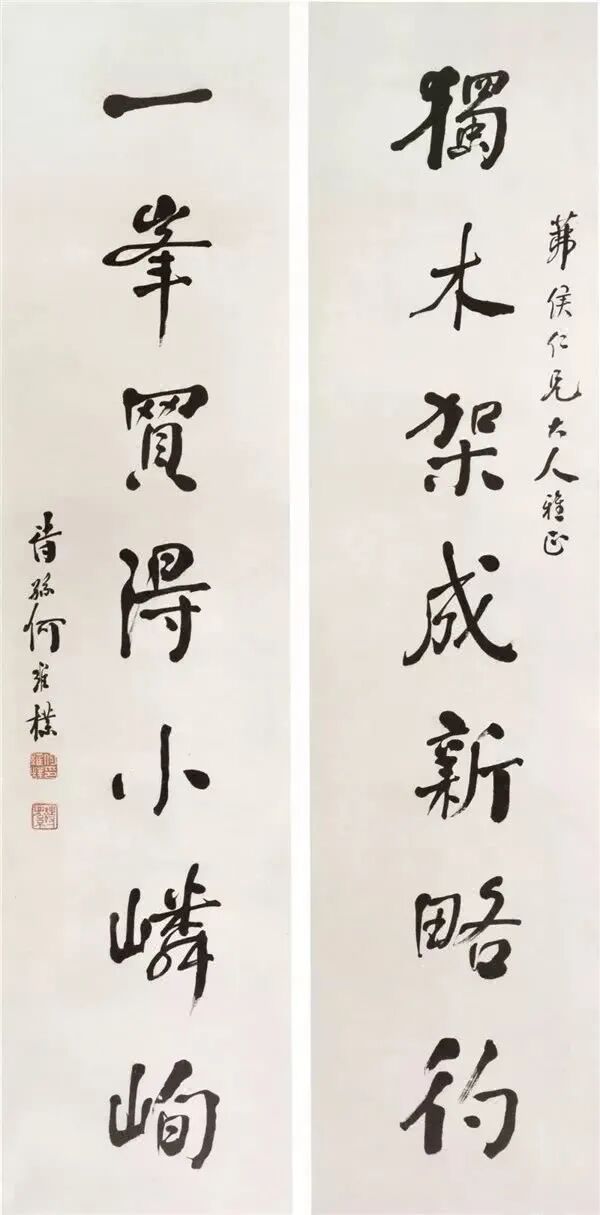 獨木架成新略彴
侯仁兄大人雅正
一峯買得小嶙峋
詩孫何維樸